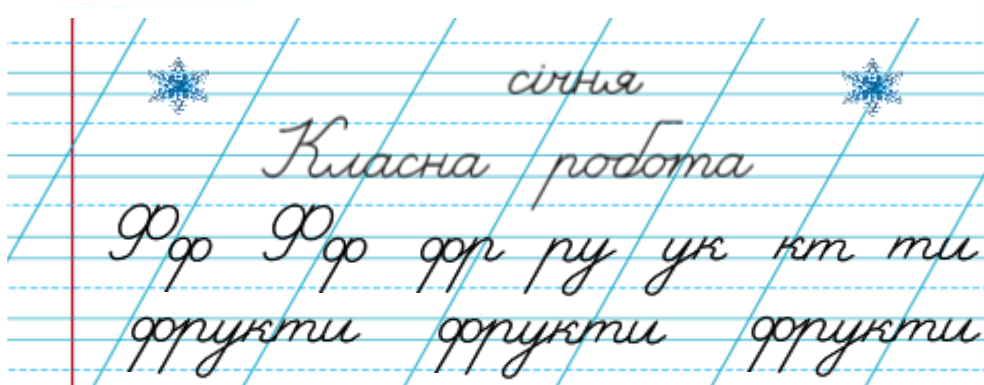 січня
Класна робота
Фф Фф фр ру ук кт ти
фрукти фрукти фрукти